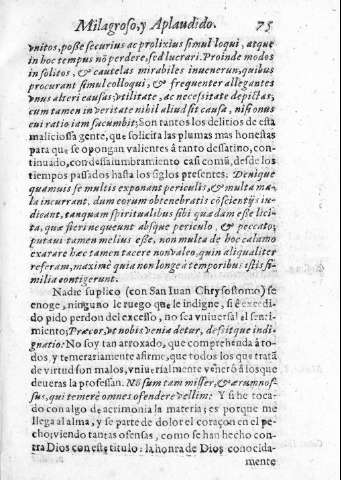 Milagroso, y Aplaudido. 75
vnitos, posse securius ac prolixius simul loqui, atque
in hoc tempus nõ perdere, sed lucrari. Proinde modos
insolitos, & cautelas mirabiles inuenerun, quibus
procurant simul colloqui, & frequenter allegantes
vnus alteri causas, vtilitate, ac necessitate depictas,
cum tamen in veritate nihil aliud sit causa, nisi onus
cui ratio iam sucumbit; Son tantos los delitios de esta
maliciossa gente, que solicita las plumas mas honestas
para que se opongan valientes â tanto dessatino, con-
tinuado, con dessalumbramiento casi comũ, desde los
tiempos passados hasta los siglos presentes: Denique
quamuis se multis exponant periculis, & multa ma-
la incurrant, dum eorum obtenebratis cõscientijs iu-
dicant, tanquam spiritualibus sibi quadam esse lici-
ta, quæ fieri nequeunt absque periculo, & peccato;
putaui tamen melius esse, non multa de hoc calamo
exarare hæc tamen tacere non valeo, quin aliqualiter
referam, maximè quia non longè à temporibus istis si-
milia contigerunt.
Nadie suplico (con San Iuan Chrysostomo) se
enoge, ninguno le ruego que le indigne, si é excedi-
do pido perdon del excesso, no sea vniuersal el senti-
miento; Præcor, vt nobis venia detur, desitque indi-
gnatio: No soy tan arroxado, que comprehenda â to-
dos, y temerariamente afirme, que todos los que tratã
de virtud son malos, vniuersalmente venerò â los que
deueras la professan. Nõ sum tam misser, & ærumnos-
sus, qui temere omnes ofendere vellim: Y si he toca-
do con algo de acrimonia la materia; es porque me
llega al alma, y se parte de dolor el coraçon en el pe-
cho; viendo tantas ofensas, como se han hecho con-
tra Dios con este titulo: la honra de Dios conocida-
mente